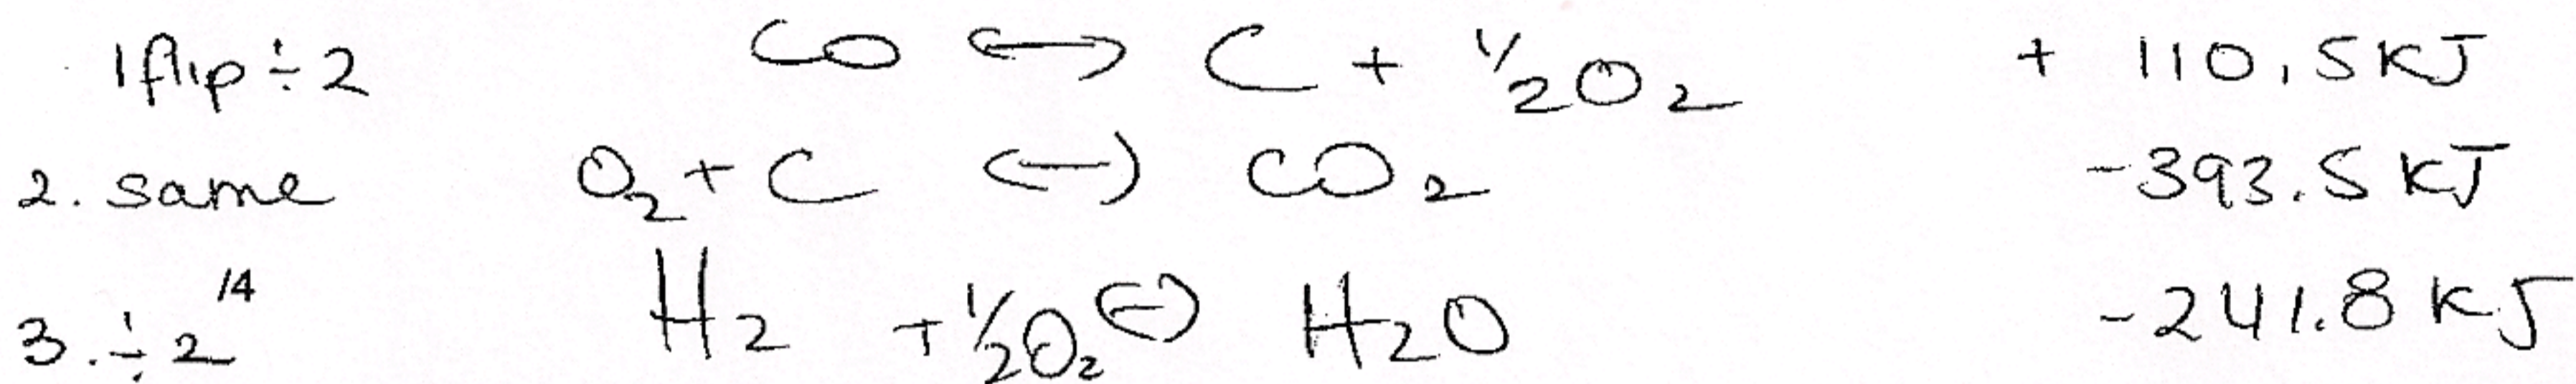 1 flip ÷ 2 CO ↔ C + 1/2 O2 + 110.5 KJ
2. same O2 + C ↔ CO2 -393.5 KJ
14
3. ÷ 2 H2 + 1/2 O2 ↔ H2O -241.8 KJ